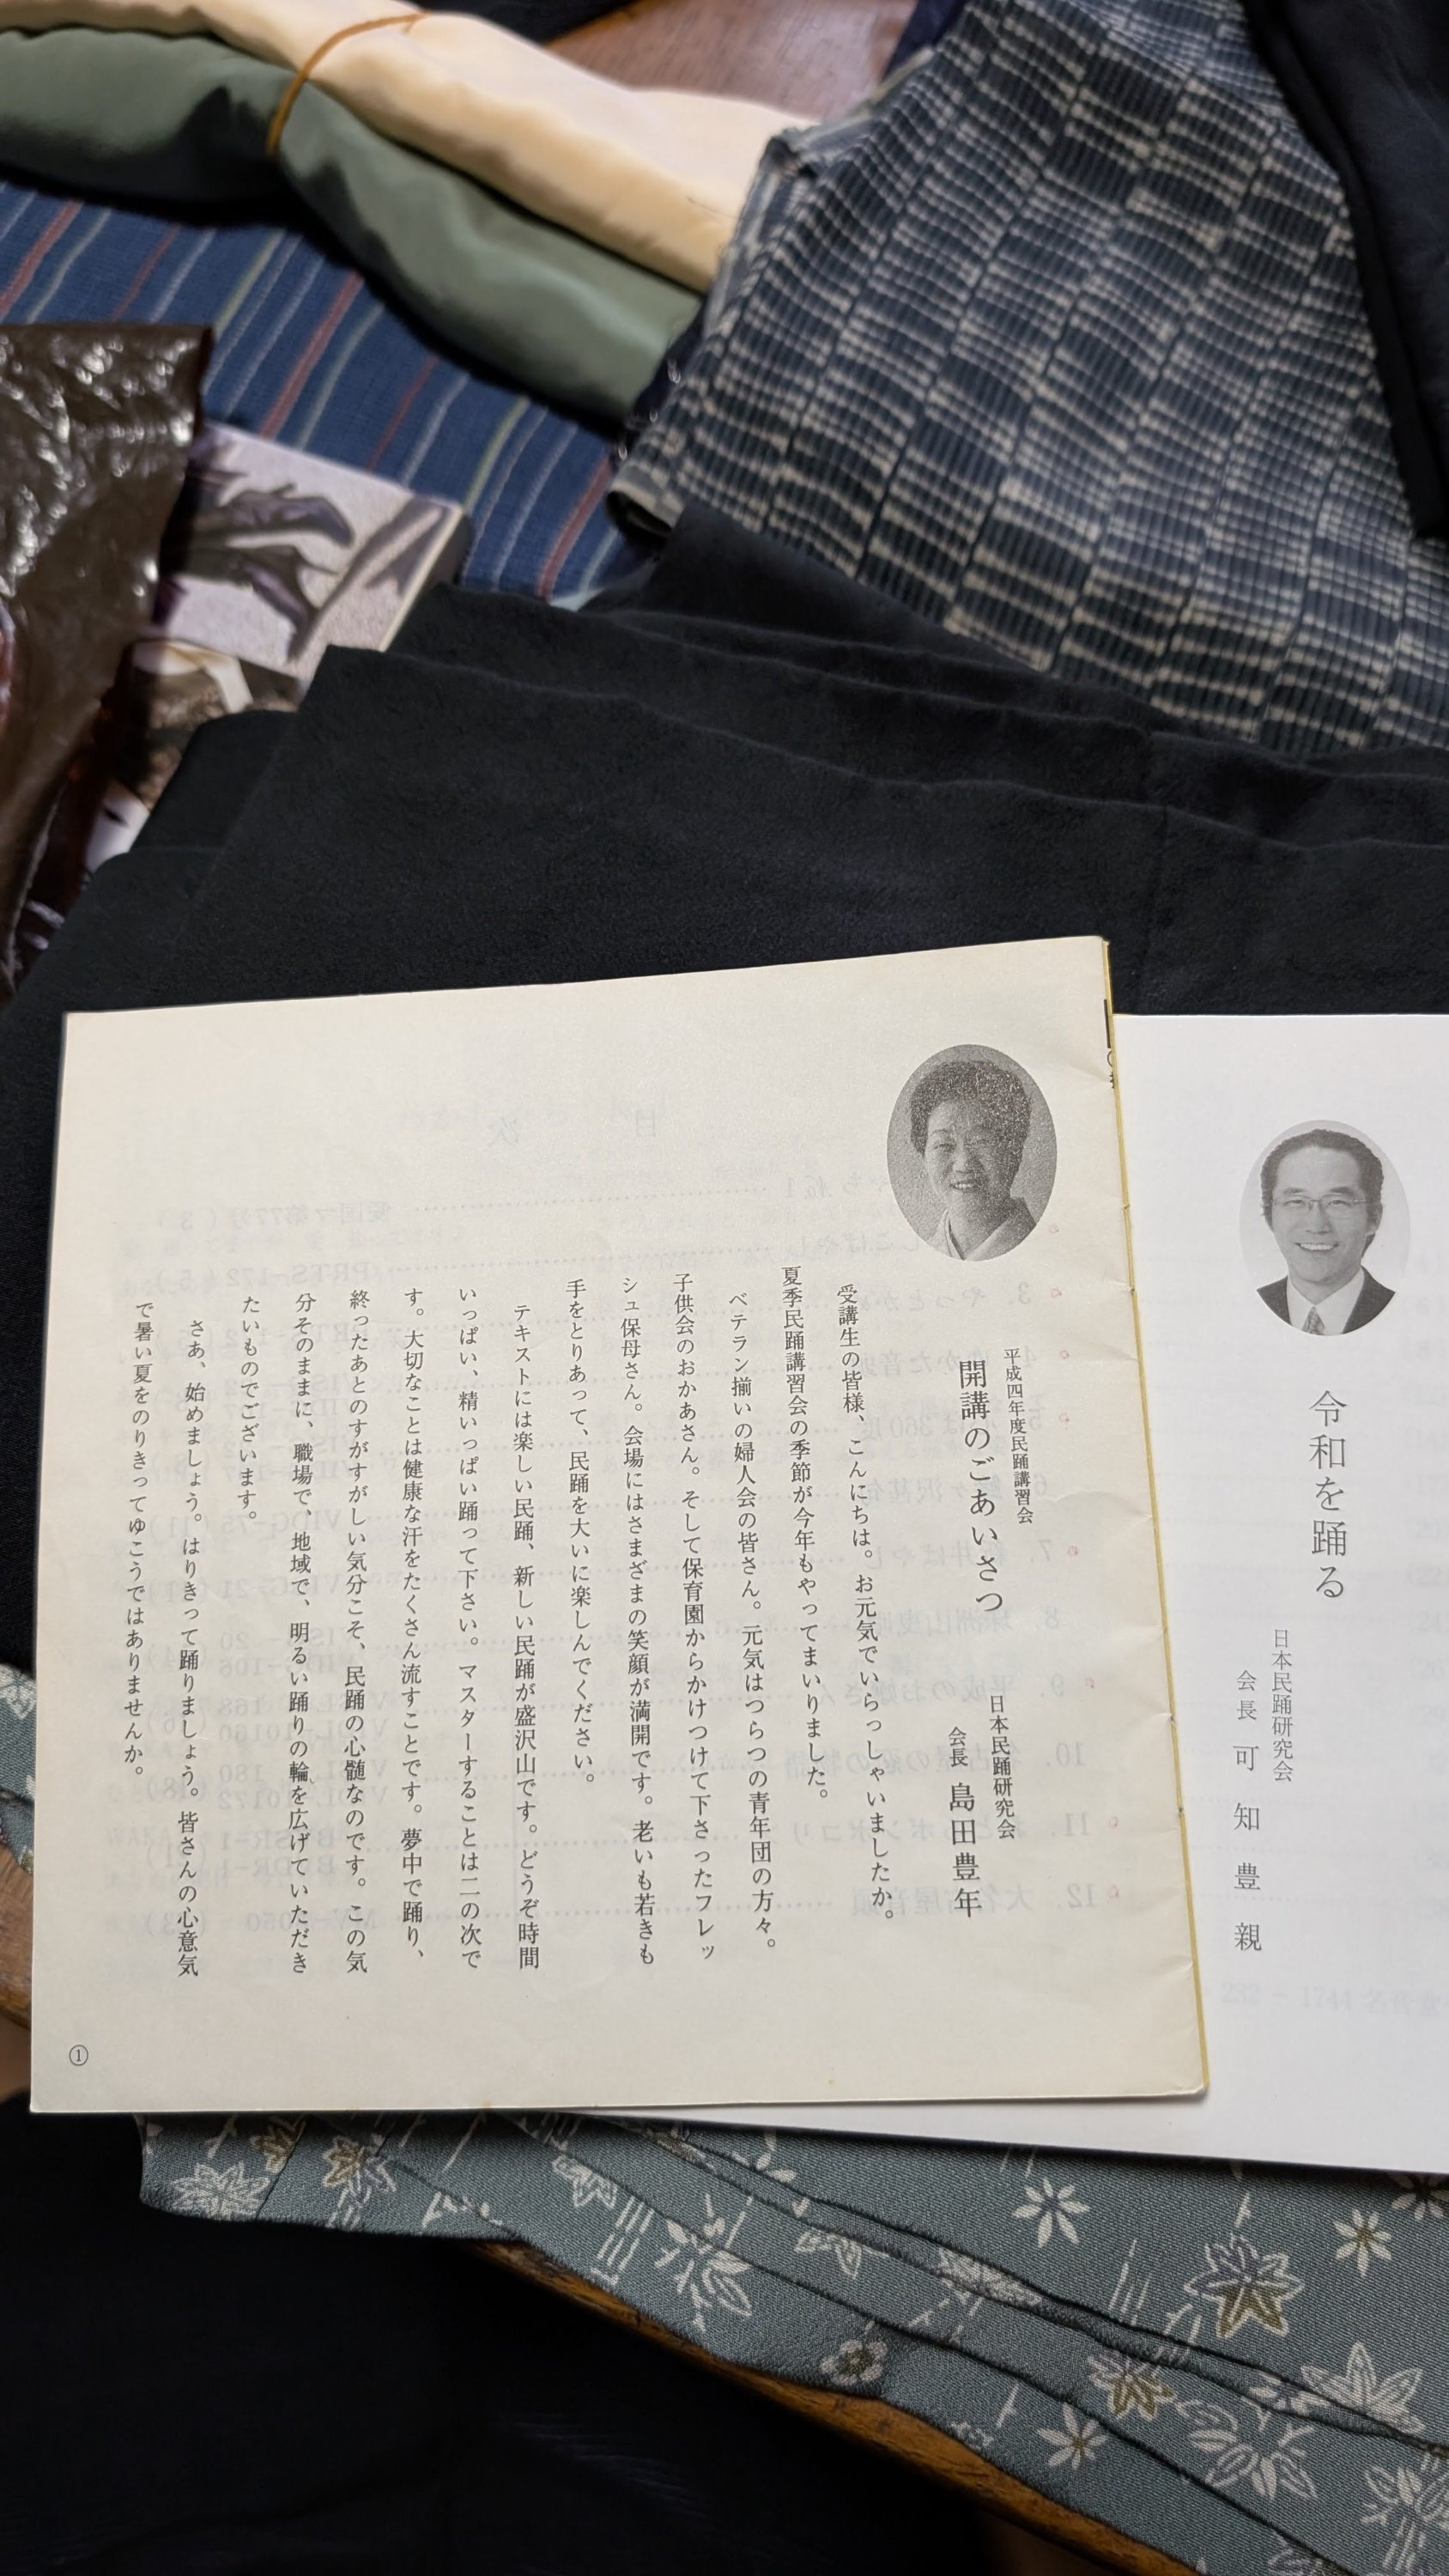 令和を踊る
日本民踊研究会
会長 可知豊親
平成四年度民踊講習会
開講のごあいさつ
日本民踊研究会
会長 島田豊年
受講生の皆様、こんにちは。お元気でいらっしゃいましたか。
夏季民踊講習会の季節が今年もやってまいりました。
ベテラン揃いの婦人会の皆さん。元気はつらつの青年団の方々。
子供会のおかあさん。そして保育園からかけつけて下さったフレッ
シュ保母さん。会場にはさまざまの笑顔が満開です。老いも若きも
手をとりあって、民踊を大いに楽しんでください。
テキストには楽しい民踊、新しい民踊が盛沢山です。どうぞ時間
いっぱい、精いっぱい踊って下さい。マスターすることは二の次で
す。大切なことは健康な汗をたくさん流すことです。夢中で踊り、
終ったあとのすがすがしい気分こそ、民踊の心髄なのです。この気
分そのままに、職場で、地域で、明るい踊りの輪を広げていただき
たいものでございます。
さあ、始めましょう。はりきって踊りましょう。皆さんの心意気
で暑い夏をのりきってゆこうではありませんか。
①